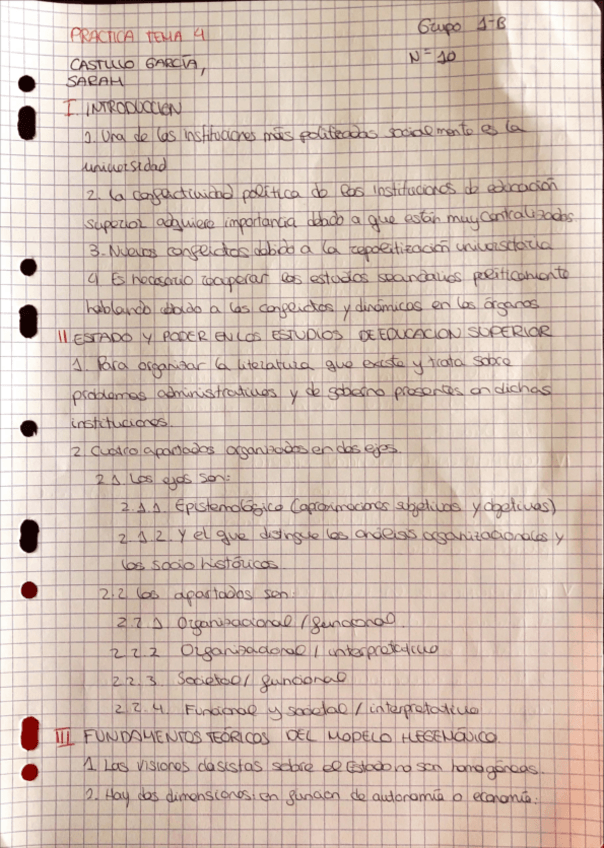 PRACTICA TEMA 4
Grupo 1-B
CASTILLO GARCÍA,
SARAH
Nº 10
I. INTRODUCCION
1. Una de las instituciones más politizadas socialmente es la
universidad
2. La conflictividad política de las instituciones de educación
superior adquiere importancia debido a que están muy centralizadas
3. Nuevos conflictos debido a la repolitización universitaria
4. Es necesario recuperar los estudios secundarios políticamente
hablando debido a los conflictos y dinámicas en los órganos
II ESTADO Y PODER EN LOS ESTUDIOS DE EDUCACION SUPERIOR
1. Para organizar la literatura que existe y trata sobre
problemas administrativos y de gobierno presentes en dichas
instituciones.
2. Cuatro apartados organizados en dos ejes.
2.1. Los ejes son:
2.1.1. Epistemológico (aproximaciones subjetivas y objetivas)
2.1.2. Y el que distingue los análisis organizacionales y
los socio históricos.
2.2 Los apartados son:
2.2.1 Organizacional / funcional.
2.2.2 Organizacional / interpretativo
2.2.3. Societal / funcional
2.2.4. Funcional y societal / interpretativo
III FUNDAMENTOS TEÓRICOS DEL MODELO HEGEMÓNICO.
1. Las visiones clasistas sobre el Estado no son homogéneas.
2. Hay dos dimensiones: en función de autonomía o economía.